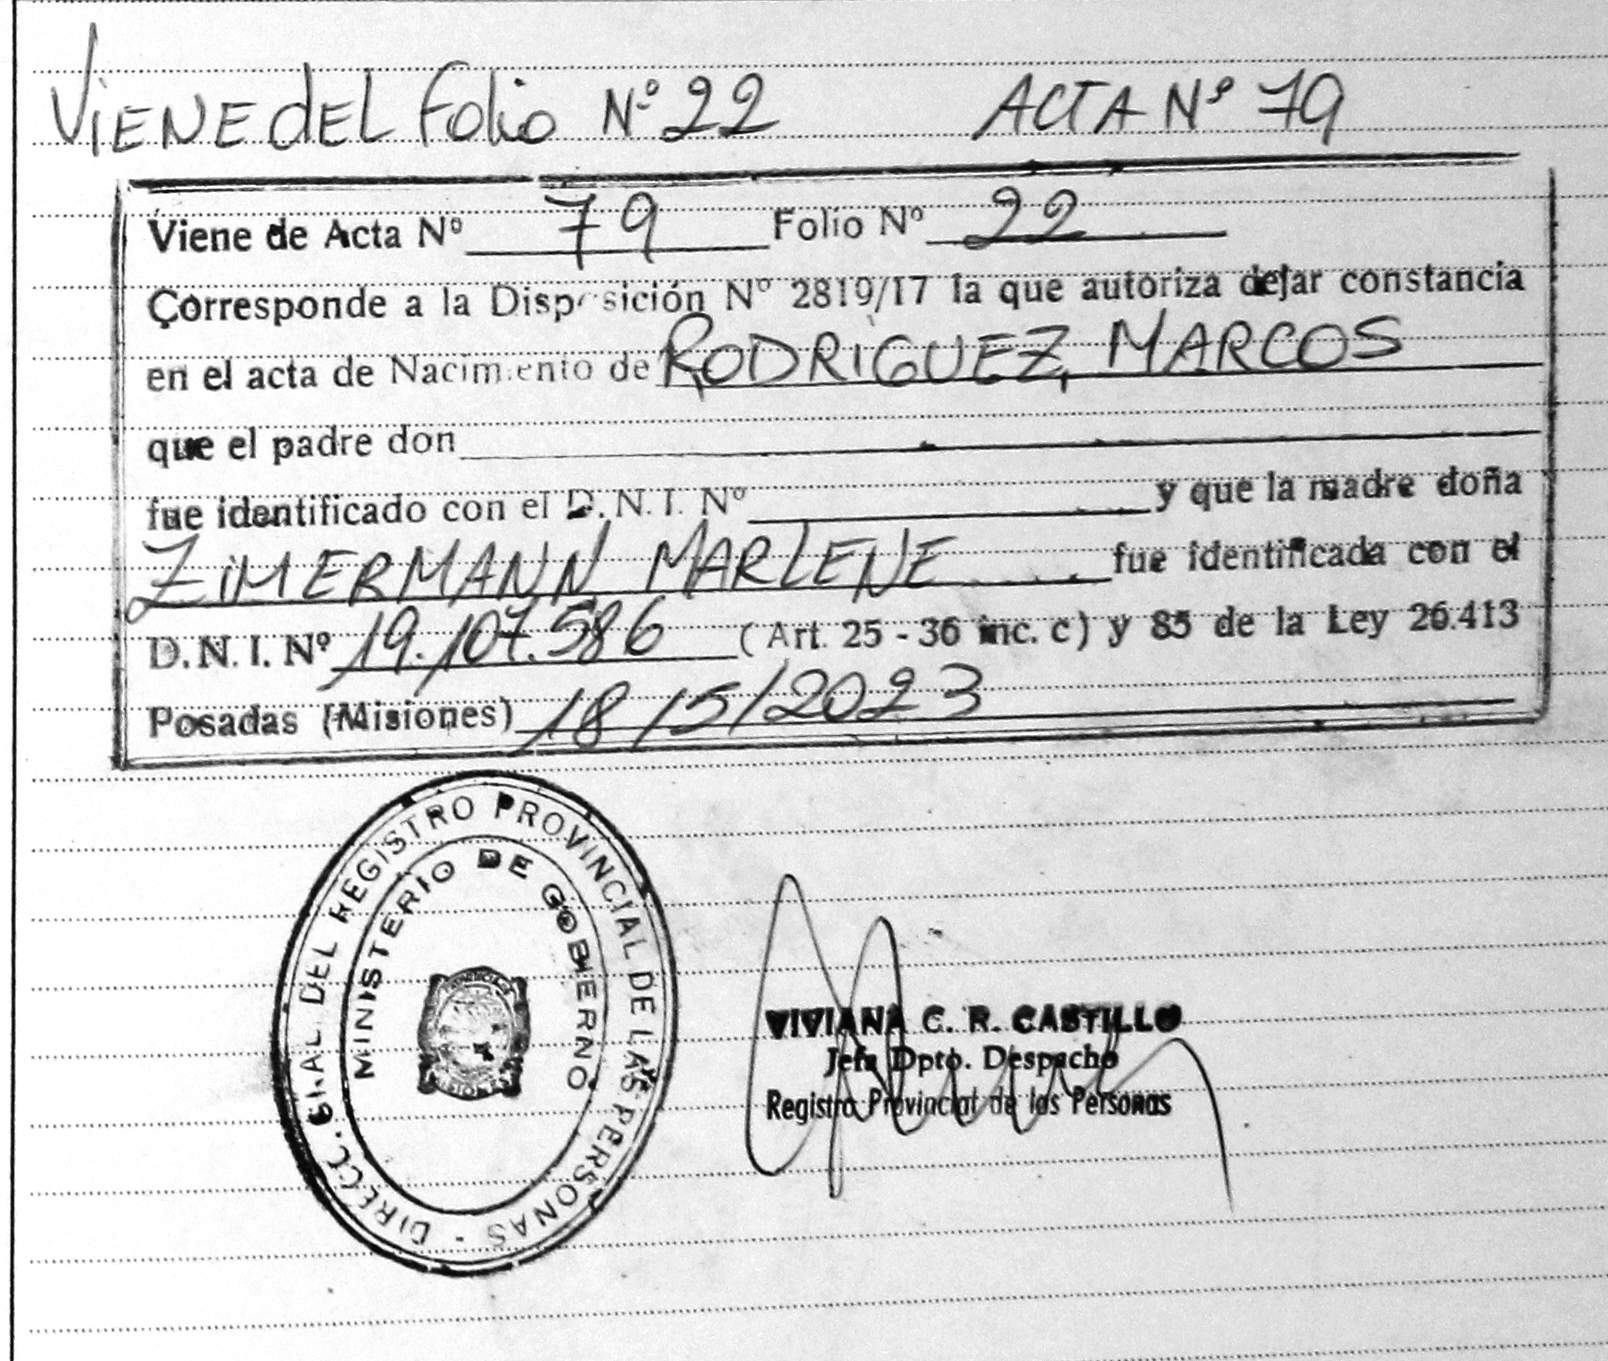 ViENE dEL Folio Nº 22 ACTA Nº 79
Viene de Acta Nº 79 Folio Nº 22
Corresponde a la Disposición Nº 2819/17 la que autoriza dejar constancia
en el acta de Nacimiento de RODRIGUEZ, MARCOS
que el padre don
fue identificado con el D.N.I. Nº y que la madre doña
ZiMERMANN, MARLENE fue identificada con el
D.N.I. Nº 19.107.586 (Art. 25 - 36 inc. c) y 85 de la Ley 26.413
Posadas (Misiones) 18/5/2023
DIRECC. GRAL. DEL REGISTRO PROVINCIAL DE LAS PERSONAS -
MINISTERIO DE GOBIERNO
VIVIANA C. R. CASTILLO
Jefa Dpto. Despacho
Registro Provincial de las Personas